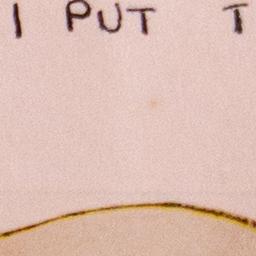 I PUT T